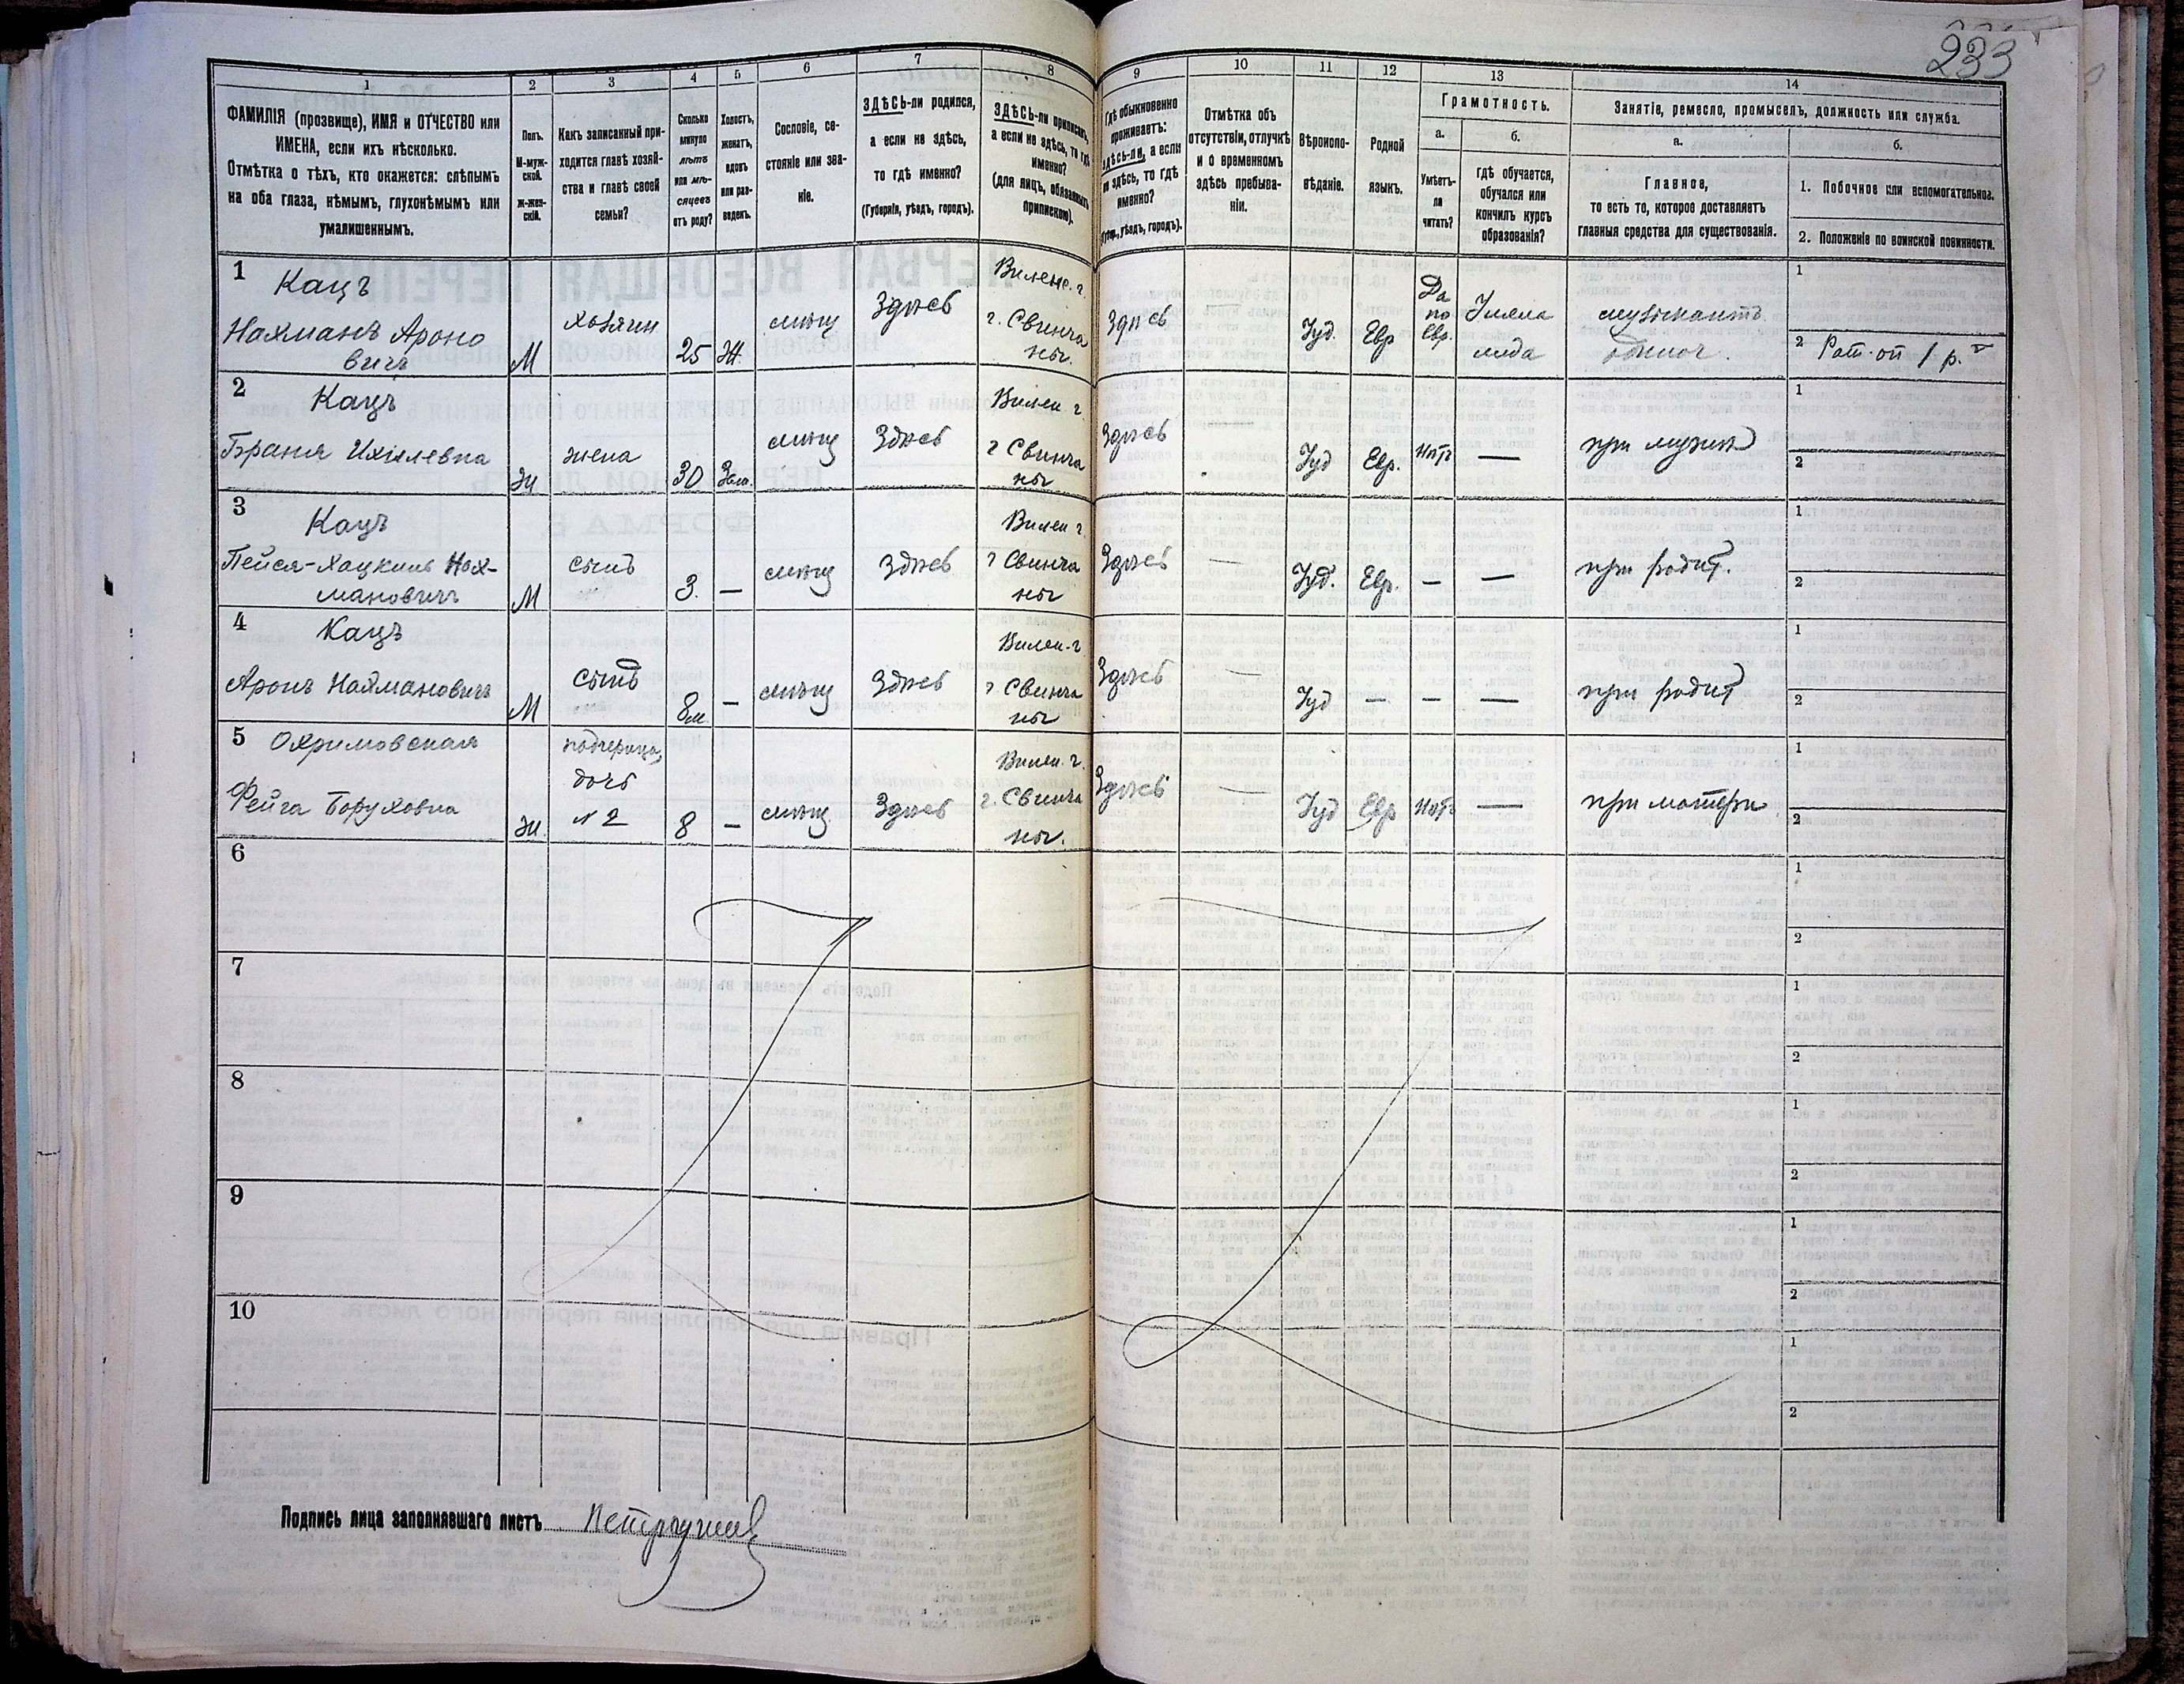 233
1
2
3
4
5
6
7
8
9
10
11
12
13
14
ФАМИЛІЯ (прозвище), ИМЯ и ОТЧЕСТВО или
ИМЕНА, если ихъ нѣсколько.
Отмѣтка о тѣхъ, кто окажется: слѣпымъ
на оба глаза, нѣмымъ, глухонѣмымъ или
умалишеннымъ.
Полъ.
М-муж-
ской.
Ж-жен-
скій.
Какъ записанный при-
ходится главѣ хозяй-
ства и главѣ своей
семьи?
Сколько
минуло
лѣтъ
или мѣ-
сяцевъ
отъ роду?
Холостъ,
женатъ,
вдовъ
или раз-
веденъ.
Сословіе, со-
стояніе или зва-
ніе.
ЗДѢСЬ-ли родился,
а если не здѣсь,
то гдѣ именно?
(Губернія, уѣздъ, городъ).
ЗДѢСЬ-ли приписанъ,
а если не здѣсь, то гдѣ
именно?
(для лицъ, обязанныхъ
припискою).
Гдѣ обыкновенно
проживаетъ:
здѣсь-ли, а если
не здѣсь, то гдѣ
именно?
(Губер., уѣздъ, городъ).
Отмѣтка объ
отсутствіи, отлучкѣ
и о временномъ
здѣсь пребыва-
ніи.
Вѣроиспо-
вѣданіе.
Родной
языкъ.
Грамотность.
а.
б.
Умѣетъ-
ли
читать?
гдѣ обучается,
обучался или
кончилъ курсъ
образованія?
Занятіе, ремесло, промыселъ, должность или служба.
а.
б.
Главное,
то есть то, которое доставляетъ
главныя средства для существованія.
1. Побочное или вспомогательное.
2. Положеніе по воинской повинности.
1
Кацъ
Нахманъ Ароно
вичъ
М
хозяин
25
Ж.
мѣщ
Здѣсь
Виленс. г.
г. Свинча
ны.
Здѣсь
Іуд.
Евр
Да
по
Евр.
музыкантъ
1
2
2
Кацъ
Браня Ихилевна
Ж
жена
30
Зам.
мѣщ
Здѣсь
Вилен. г
г Свинча
ны
Здѣсь
Іуд
Евр.
Нѣтъ
—
при мужѣ
1
2
3
Кацъ
Пейса-Хацкель Нах-
мановичъ
М
сынъ
3.
—
мѣщ
Здѣсь
Вилен г.
г Свинча
ны
Здѣсь
—
Іуд.
Евр.
—
—
при родит.
1
2
4
Кацъ
Аронъ Нахмановичъ
М
сынъ
8м
—
мѣщ
Здѣсь
Вилен. г
г Свинча
ны
Здѣсь
—
Іуд
—
—
—
при родит
1
2
5
Охримовская
Фейга Боруховна
Ж.
падчерица,
дочь
№ 2
8
—
мѣщ
Здѣсь
Вилен. г.
г. Свинча
ны.
Здѣсь
—
Іуд
Евр
Нѣтъ
—
при матери
1
2
6
1
2
7
1
2
8
1
2
9
1
2
10
1
2
Подпись лица заполнявшаго листъ